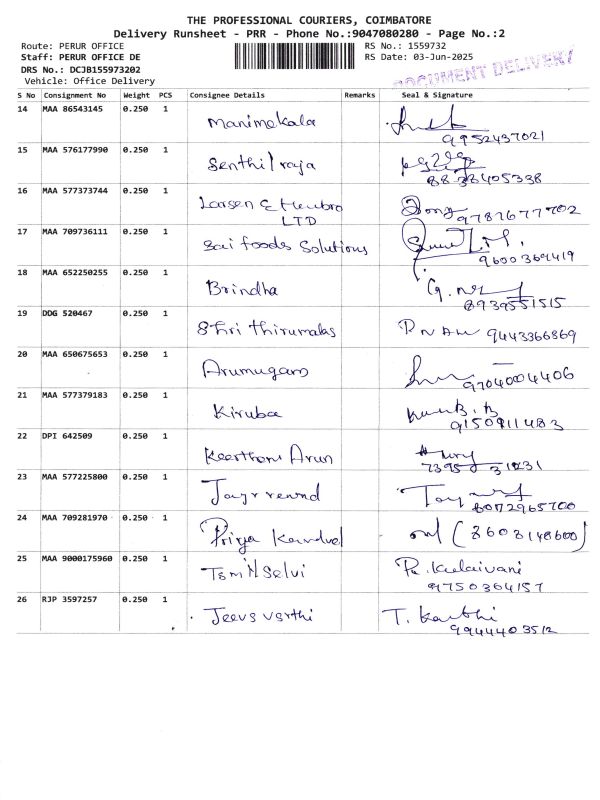 THE PROFESSIONAL COURIERS, COIMBATORE
Delivery Runsheet - PRR - Phone No.:9047080280 - Page No.:2
Route: PERUR OFFICE RS No.: 1559732
Staff: PERUR OFFICE DE RS Date: 03-Jun-2025
DRS No.: DCJB155973202
Vehicle: Office Delivery
DOCUMENT DELIVERY
S No Consignment No Weight PCS Consignee Details Remarks Seal & Signature
14 MAA 86543145 0.250 1 Manimekala
9952437021
15 MAA 576177990 0.250 1 Senthil raja
8838405338
16 MAA 577373744 0.250 1 Larsen &
LTD 9787677702
17 MAA 709736111 0.250 1 Sai foods Solutions
9600369419
18 MAA 652250255 0.250 1 Brindha
8939551515
19 DDG 520467 0.250 1 Shri thirumalas 9443366869
20 MAA 650675653 0.250 1 Arumugam
97040004406
21 MAA 577379183 0.250 1 Kiruba
9150911483
22 DPI 642509 0.250 1 Keerthana Arun
23 MAA 577225800 0.250 1
8072965700
24 MAA 709281970 0.250 1 Priya (8608148600)
25 MAA 9000175960 0.250 1 Tamil Selvi P. Kalaivani
9750364157
26 RJP 3597257 0.250 1 Jeeva varthi T. Karthi
9944403512